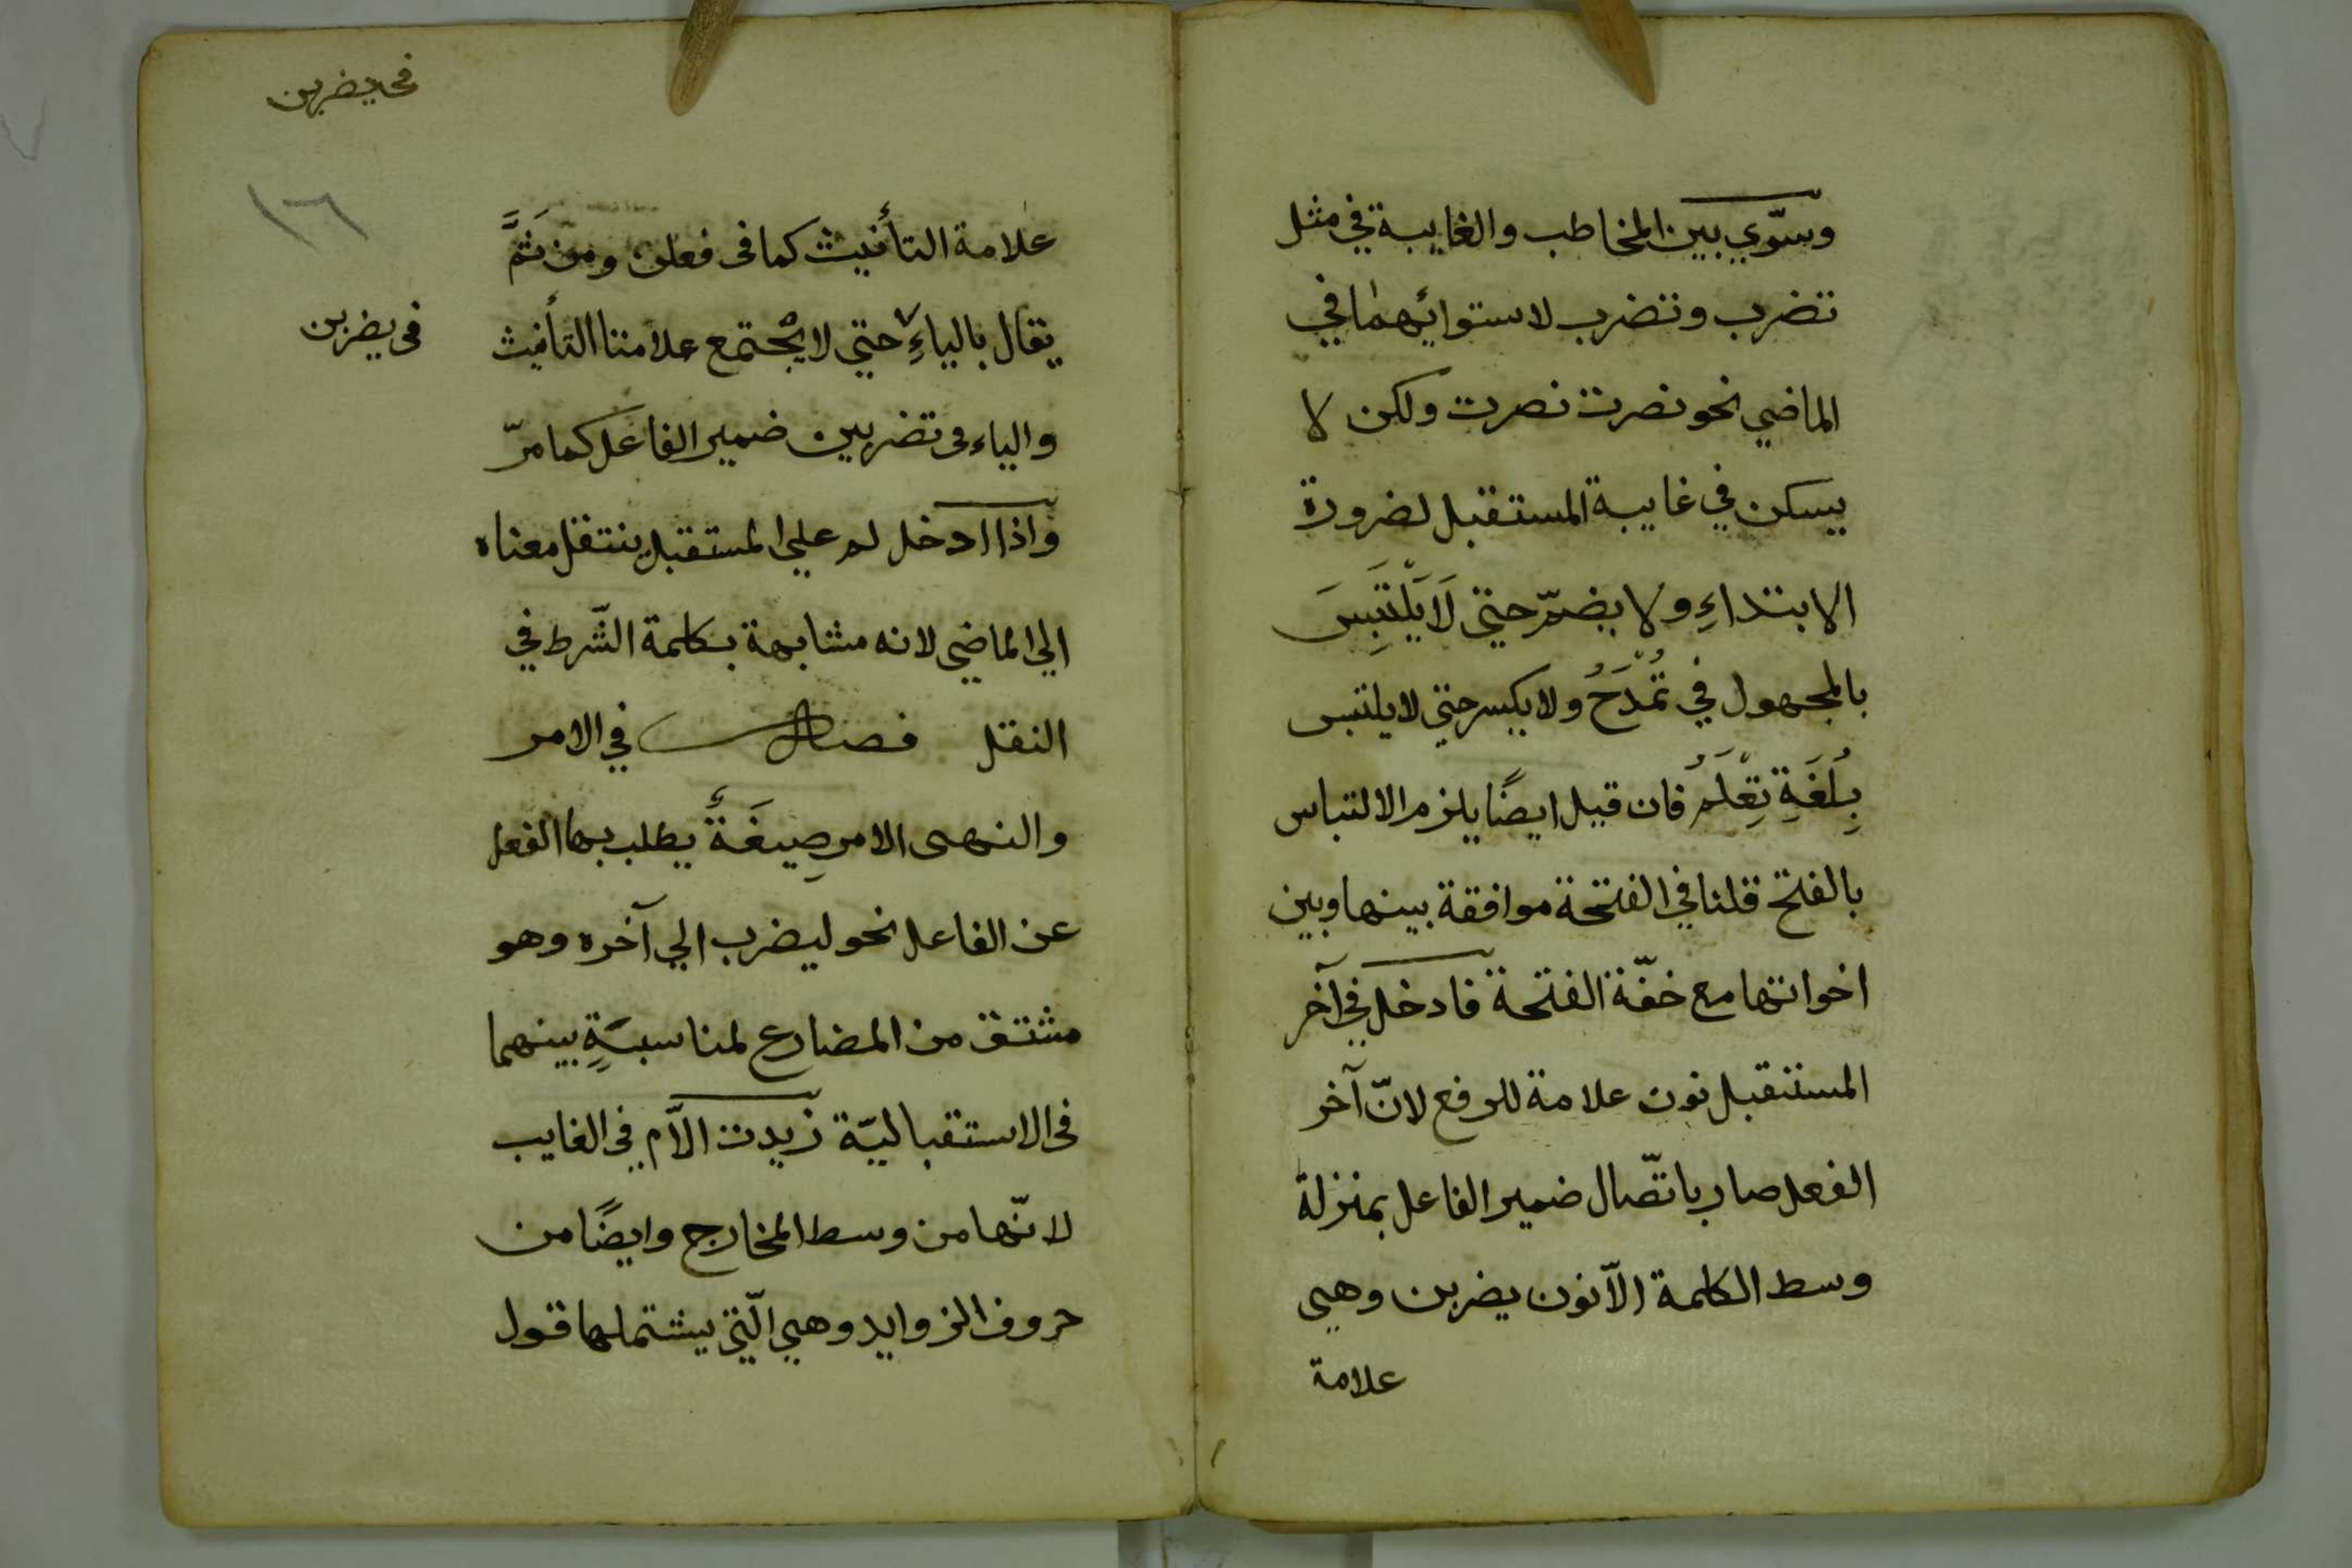 وسوّي بين المخاطب والغايبة في مثل
تضرب وتضرب لاستوائهما في
الماضي نحو نصرت نصرت ولكن لا
يسكن في غايبة المستقبل لضرورة
الابتداءِ ولا يضمّ حتي لَا يَلْتَبِسَ
بالمجهول في تُمْدَحُ ولا يكسر حتي لا يلتبس
بِلُغَةِ تِعْلَمُ فان قيل ايضًا يلزم الالتباس
بالفتح قلنا في الفتحة موافقة بينها وبين
اخواتها مع خفّة الفتحة فادخل في آخر
المستقبل نون علامة للرفع لانّ آخر
الفعل صار باتّصال ضمير الفاعل بمنزلة
وسط الكلمة الّا نون يضربن وهي
علامة
في يضربن
١٦
علامة التأنيث كما في فعلن ومن ثَمَّ
يقال بالياءِ حتي لا يجْتمع علامتا التأنيث
في يضربن
والياء في تضربين ضمير الفاعل كما مرّ
واذا ادخل لم علي المستقبل ينتقل معناه
الي الماضي لانه مشابهة بكلمة الشّرط في
النقل فصل في الامر
والنهى الامر صِيغَةٌ يطلب بها الفعل
عن الفاعل نحو ليضرب الي آخره وهو
مشتق من المضارع لمناسبَةٍ بينهما
في الاستقباليّة زيدت الاّم في الغايب
لانّها من وسط المخارج وايضًا من
حروف الزوايد وهي الّتي يشتملها قول